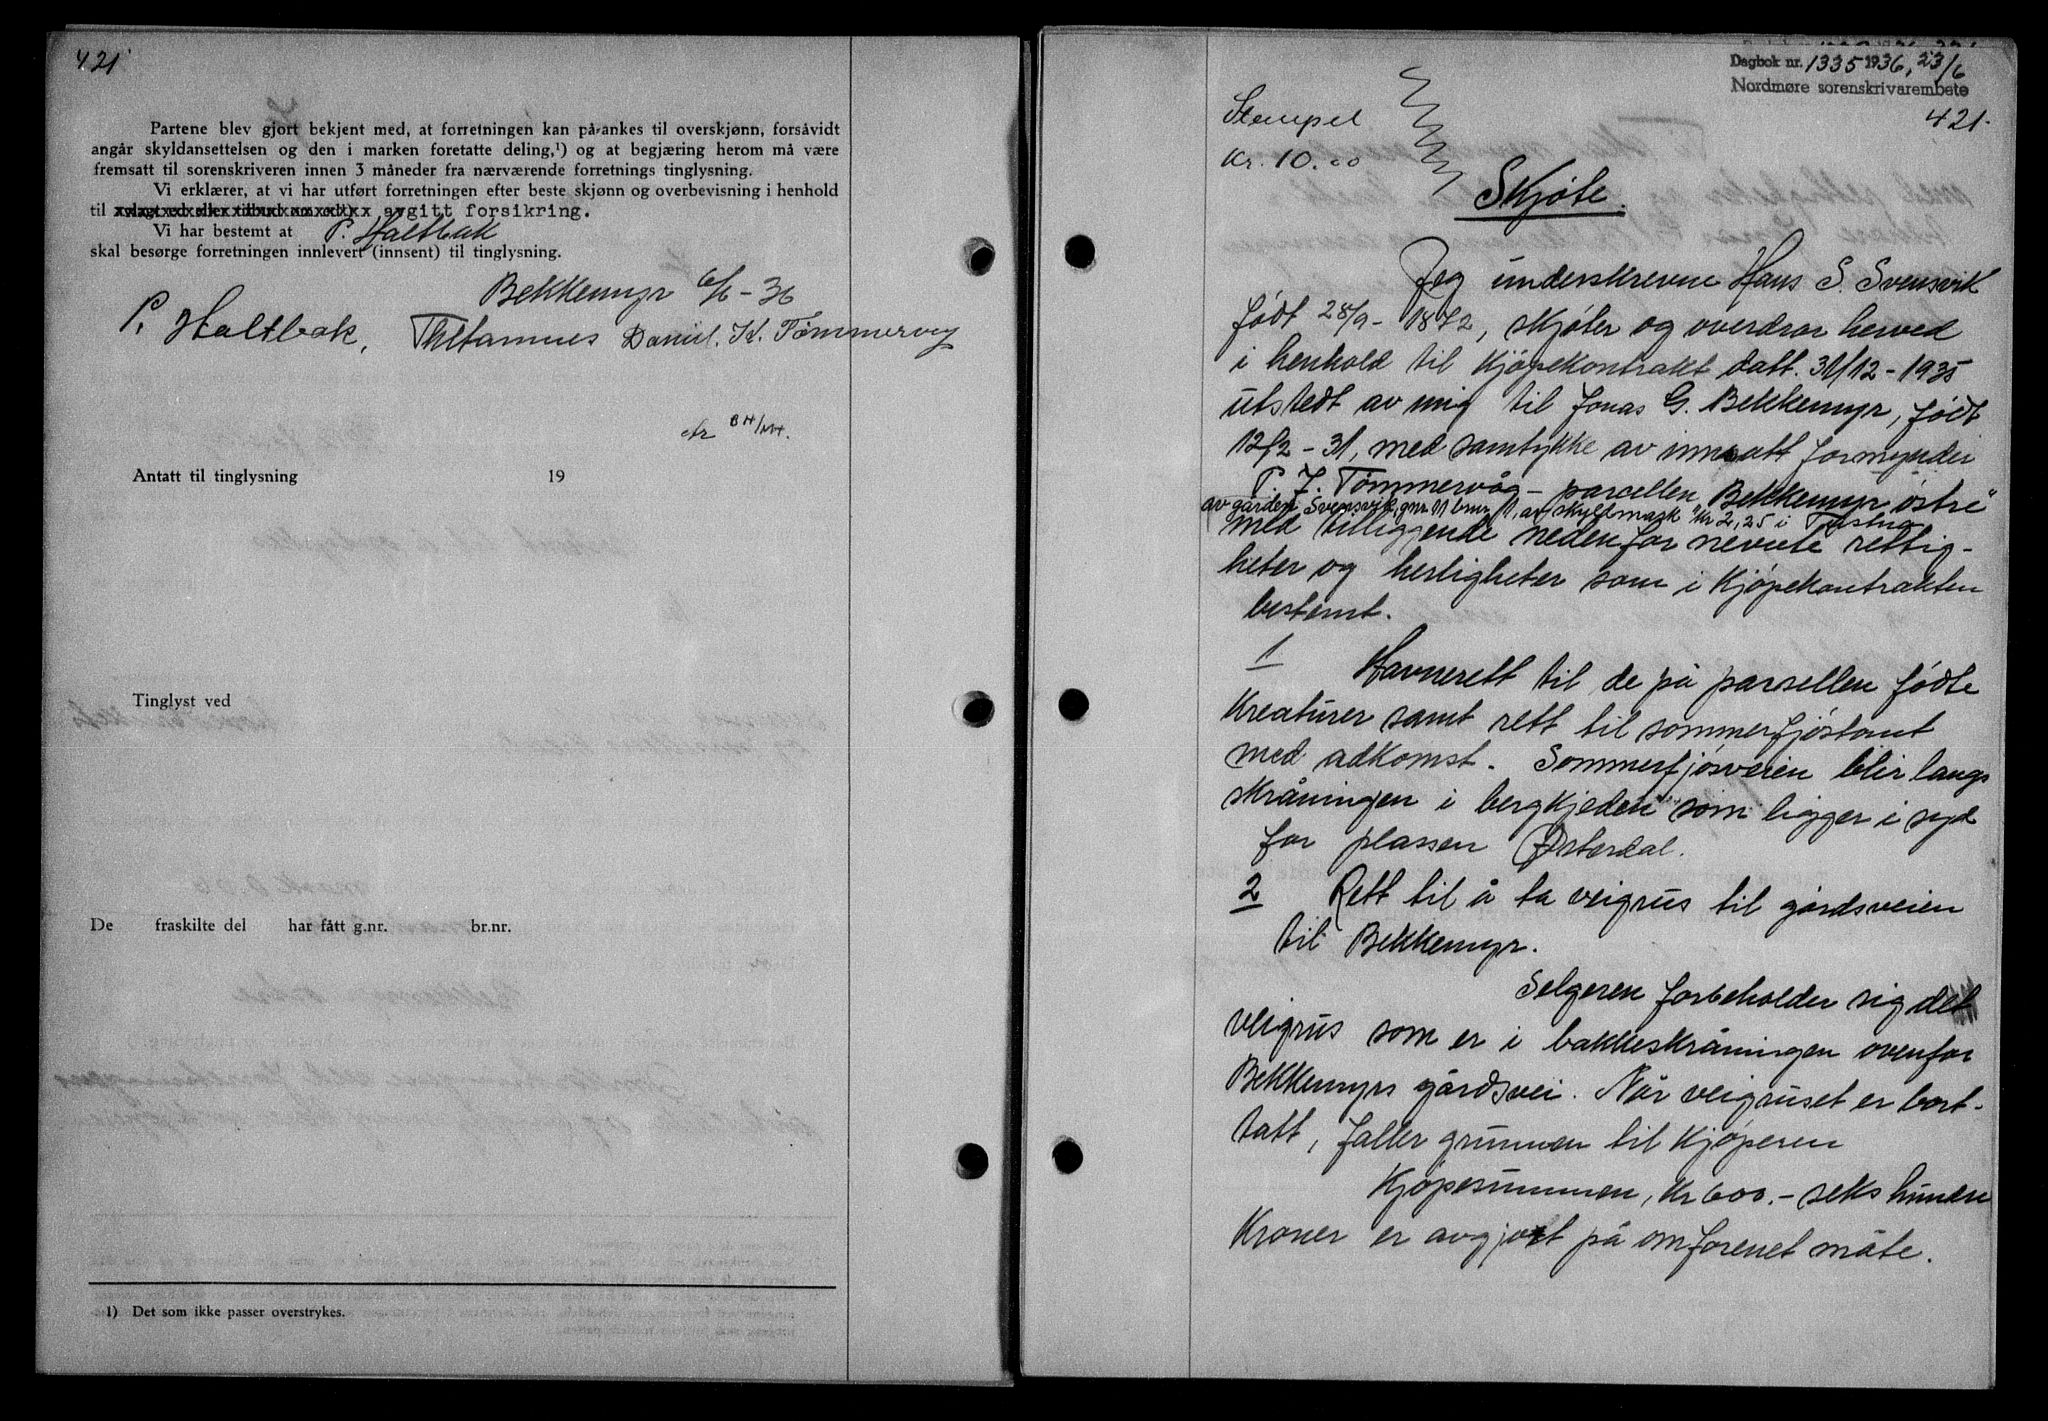 421
Partene blev gjort bekjent med, at forretningen kan på-ankes til overskjønn, forsåvidt
angår skyldansettelsen og den i marken foretatte deling,¹) og at begjæring herom må være
fremsatt til sorenskriveren innen 3 måneder fra nærværende forretnings tinglysning.
Vi erklærer, at vi har utført forretningen efter beste skjønn og overbevisning i henhold
til avgitt forsikring.
Vi har bestemt at P. Haltbak
skal besørge forretningen innlevert (innsent) til tinglysning.
Bekkemyr 6/6 - 36
P. Haltbak, Daniel. K. Tømmervåg
Antatt til tinglysning 19
Tinglyst ved
De fraskilte del har fått g.nr. br.nr.
1) Det som ikke passer overstrykes.
Dagbok nr. 1335 1936, 23/6
Nordmøre sorenskrivarembete
421.
Stempel
Kr. 10.00
Skjøte.
Jeg underskrevne Hans S. Svensvik
født 28/9 - 1872, skjøter og overdrar herved
i henhold til Kjøpekontrakt datt. 31/12 - 1935
utstedt av mig til Jonas G. Bekkemyr, født
12/2 - 31, med samtykke av innsatt formynder
P. J. Tømmervåg - parcellen Bekkemyr østre"
av gården Svensvik, gnr. 11 bnr. 1, av skyldmark Kr 2,25 i Tustna
med tilliggende nedenfor nevnte rettig-
heter og herligheter som i Kjøpekontrakten
bestemt.
1 Havnerett til de på parsellen fødte
Kreaturer samt rett til sommerfjøstomt
med adkomst. Sommerfjøsveien blir langs
skråningen i bergkjeden som ligger i syd
for plassen Østerdal.
2 Rett til å ta veigrus til gårdsveien
til Bekkemyr.
Selgeren forbeholder sig det
veigrus som er i bakkeskråningen ovenfor
Bekkemyrs gårdsvei. Når veigruset er bort-
tatt, faller grunnen til Kjøperen
Kjøpesummen, Kr 600.- seks hundre
Kroner er avgjort på omforenet måte.